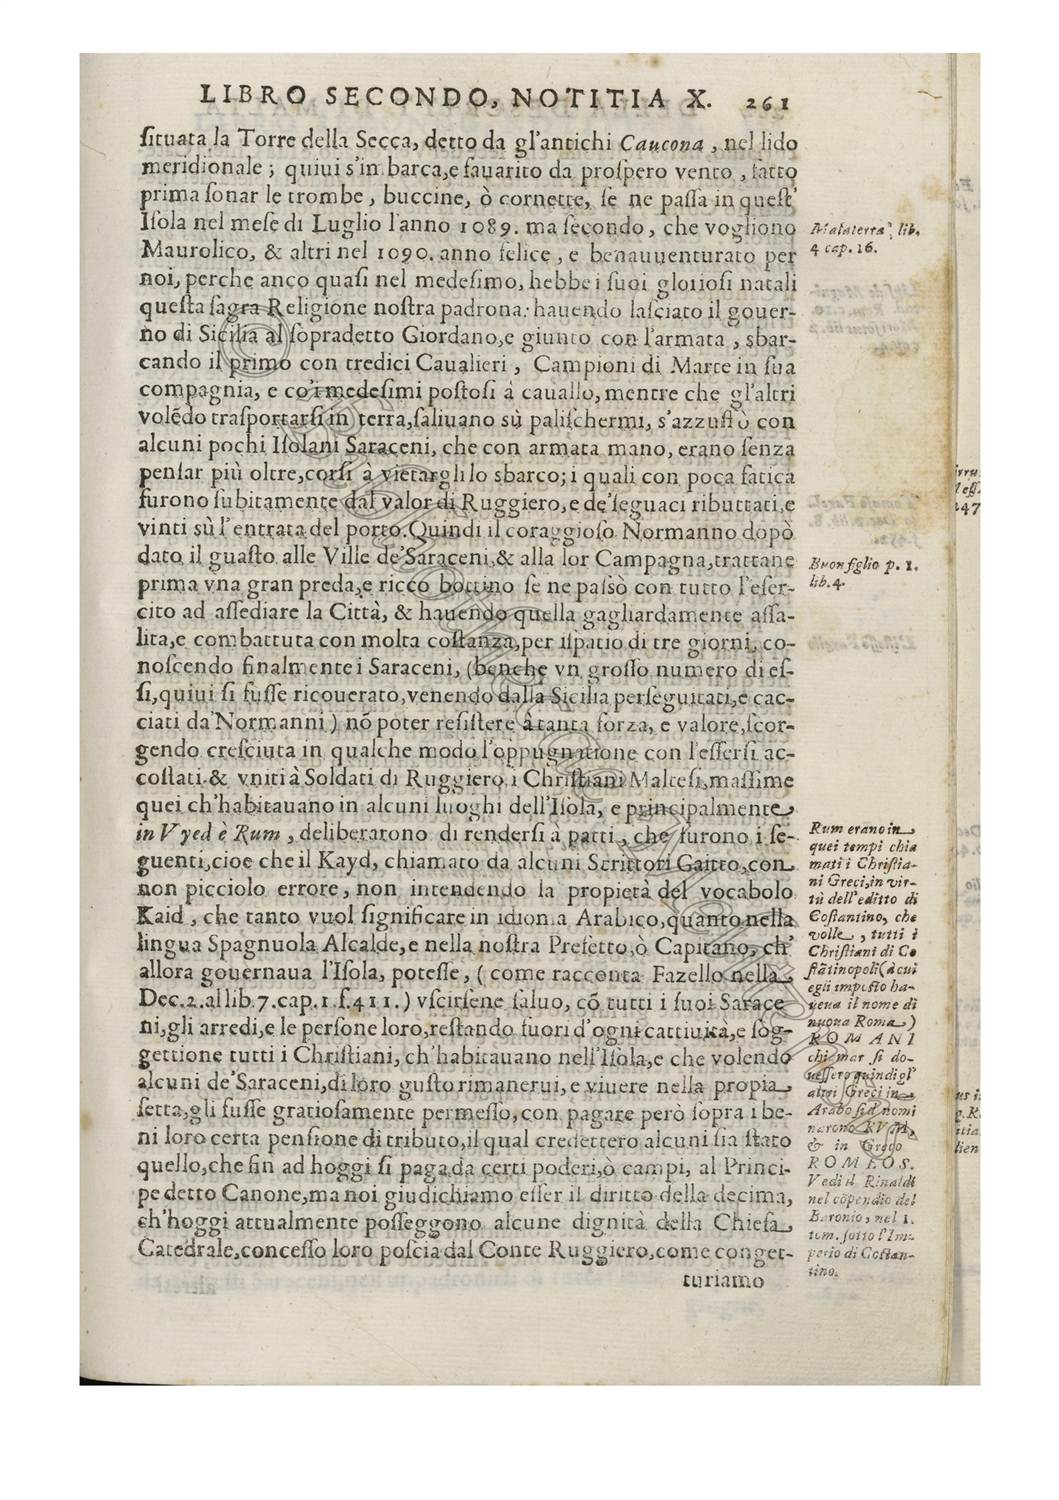 LIBRO SECONDO, NOTITIA X. 261
ſituata la Torre della Secca, detto da gl'antichi Caucona, nel lido
meridionale; quiui s'imbarca, e fauorito da proſpero vento, fatto
prima ſonar le trombe, buccine, ò cornette, ſe ne paſſa in queſt'
Iſola nel meſe di Luglio l'anno 1089. ma ſecondo, che vogliono
Maurolico, & altri nel 1090. anno felice, e benauuenturato per
noi, perche anco quaſi nel medeſimo, hebbe i ſuoi glorioſi natali
queſta ſagra Religione noſtra padrona: hauendo laſciato il gouer-
no di Sicilia al ſopradetto Giordano, e giunto con l'armata, sbar-
cando il primo con tredici Caualieri, Campioni di Marte in ſua
compagnia, e co'i medeſimi poſtoſi à cauallo, mentre che gl'altri
volẽdo traſportarſi in terra, ſaliuano sù paliſchermi, s'azzuffò con
alcuni pochi Iſolani Saraceni, che con armata mano, erano ſenza
penſar più oltre, corſi à vietargli lo sbarco; i quali con poca fatica
furono ſubitamente dal valor di Ruggiero, e de'ſeguaci ributtati, e
vinti sù l'entrata del porto. Quindi il coraggioſo Normanno dopò
dato il guaſto alle Ville de'Saraceni, & alla lor Campagna, trattane
prima vna gran preda, e ricco bottino ſe ne paſsò con tutto l'eſer-
cito ad aſſediare la Città, & hauendo quella gagliardamente aſſa-
lita, e combattuta con molta coſtanza, per iſpatio di tre giorni, co-
noſcendo finalmente i Saraceni, (benche vn groſſo numero di eſ-
ſi, quiui ſi fuſſe ricouerato, venendo dalla Sicilia perſeguitati, e cac-
ciati da'Normanni) nõ poter reſiſtere à tanta forza, e valore, ſcor-
gendo creſciuta in qualche modo l'oppugnatione con l'eſſerſi ac-
coſtati & vniti à Soldati di Ruggiero i Chriſtiani Malteſi, maſſime
quei ch'habitauano in alcuni luoghi dell'Iſola, e principalmente
in Vyed è Rum, deliberarono di renderſi à patti, che furono i ſe-
guenti, cioe che il Kayd, chiamato da alcuni Scrittori Gaitto, con
non picciolo errore, non intendendo la propietà del vocabolo
Kaid, che tanto vuol ſignificare in idioma Arabico, quanto nella
lingua Spagnuola Alcalde, e nella noſtra Prefetto, ò Capitano, ch'
allora gouernaua l'Iſola, poteſſe, (come racconta Fazello nella
Dec. 2. al lib. 7. cap. 1. f. 411.) vſcirſene ſaluo, cõ tutti i ſuoi Sarace
ni, gli arredi, e le perſone loro, reſtando fuori d'ogni cattiuità, e ſog-
gettione tutti i Chriſtiani, ch'habitauano nell'Iſola, e che volendo
alcuni de'Saraceni, di loro guſto rimanerui, e viuere nella propia
ſetta, gli fuſſe gratioſamente permeſſo, con pagare però ſopra i be-
ni loro certa penſione di tributo, il qual credettero alcuni ſia ſtato
quello, che fin ad hoggi ſi paga da certi poderi, ò campi, al Princi-
pe detto Canone, ma noi giudichiamo eſſer il diritto della decima,
ch'hoggi attualmente poſſeggono alcune dignità della Chieſa
Catedrale, conceſſo loro poſcia dal Conte Ruggiero, come conget-
turiamo
Malaterra lib.
4 cap. 16.
Buonfiglio p. 1.
lib. 4.
Rum erano in
quei tempi chia
mati i Chriſtia-
ni Greci, in vir-
tù dell'editto di
Coſtantino, che
volle, tutti i
Chriſtiani di Co
ſtãtinopoli (à cui
egli impoſto ha-
ueua il nome di
nuoua Roma)
ROMANI
chiamar ſi do-
ueſſero quindi gl'
altri Greci in
Arabo ſi d nomi
narono RVM,
& in Greco
ROMEOS.
Vedi il Rinaldi
nel cõpendio del
Baronio, nel 1.
tom. ſotto l'Im-
perio di Coſtan-
tino.